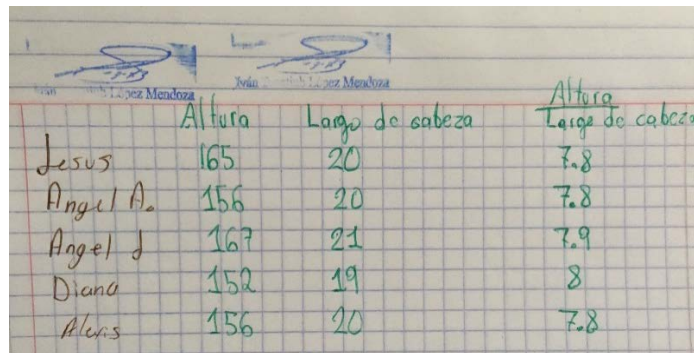 López Mendoza Iván López Mendoza
Altura Largo de cabeza Altura
Largo de cabeza
Jesus 165 20 7.8
Angel A. 156 20 7.8
Angel J 167 21 7.9
Diana 152 19 8
Alexis 156 20 7.8